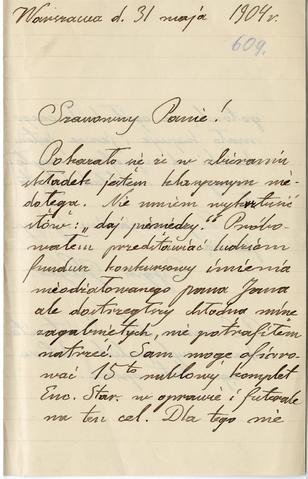 Warszawa d. 31 maja 1904 r.
609.
Szanowny Panie!
Pokazało się że w zbieraniu
składek jestem klasycznym nie-
dołęgą. Nie umiem wykrztusić
słów: „daj pieniędzy." Próbo-
wałem przedstawiać ludziom
fundusz konkursowy imienia
nieodżałowanego pana Jana
ale dostrzegłszy chłodną minę
zagabniętych, nie potrafiłem
natrzeć. Sam mogę ofiaro-
wać 15to rublowy komplet
Enc. Star. w oprawie i futerale
na ten cel. Dla tego nie